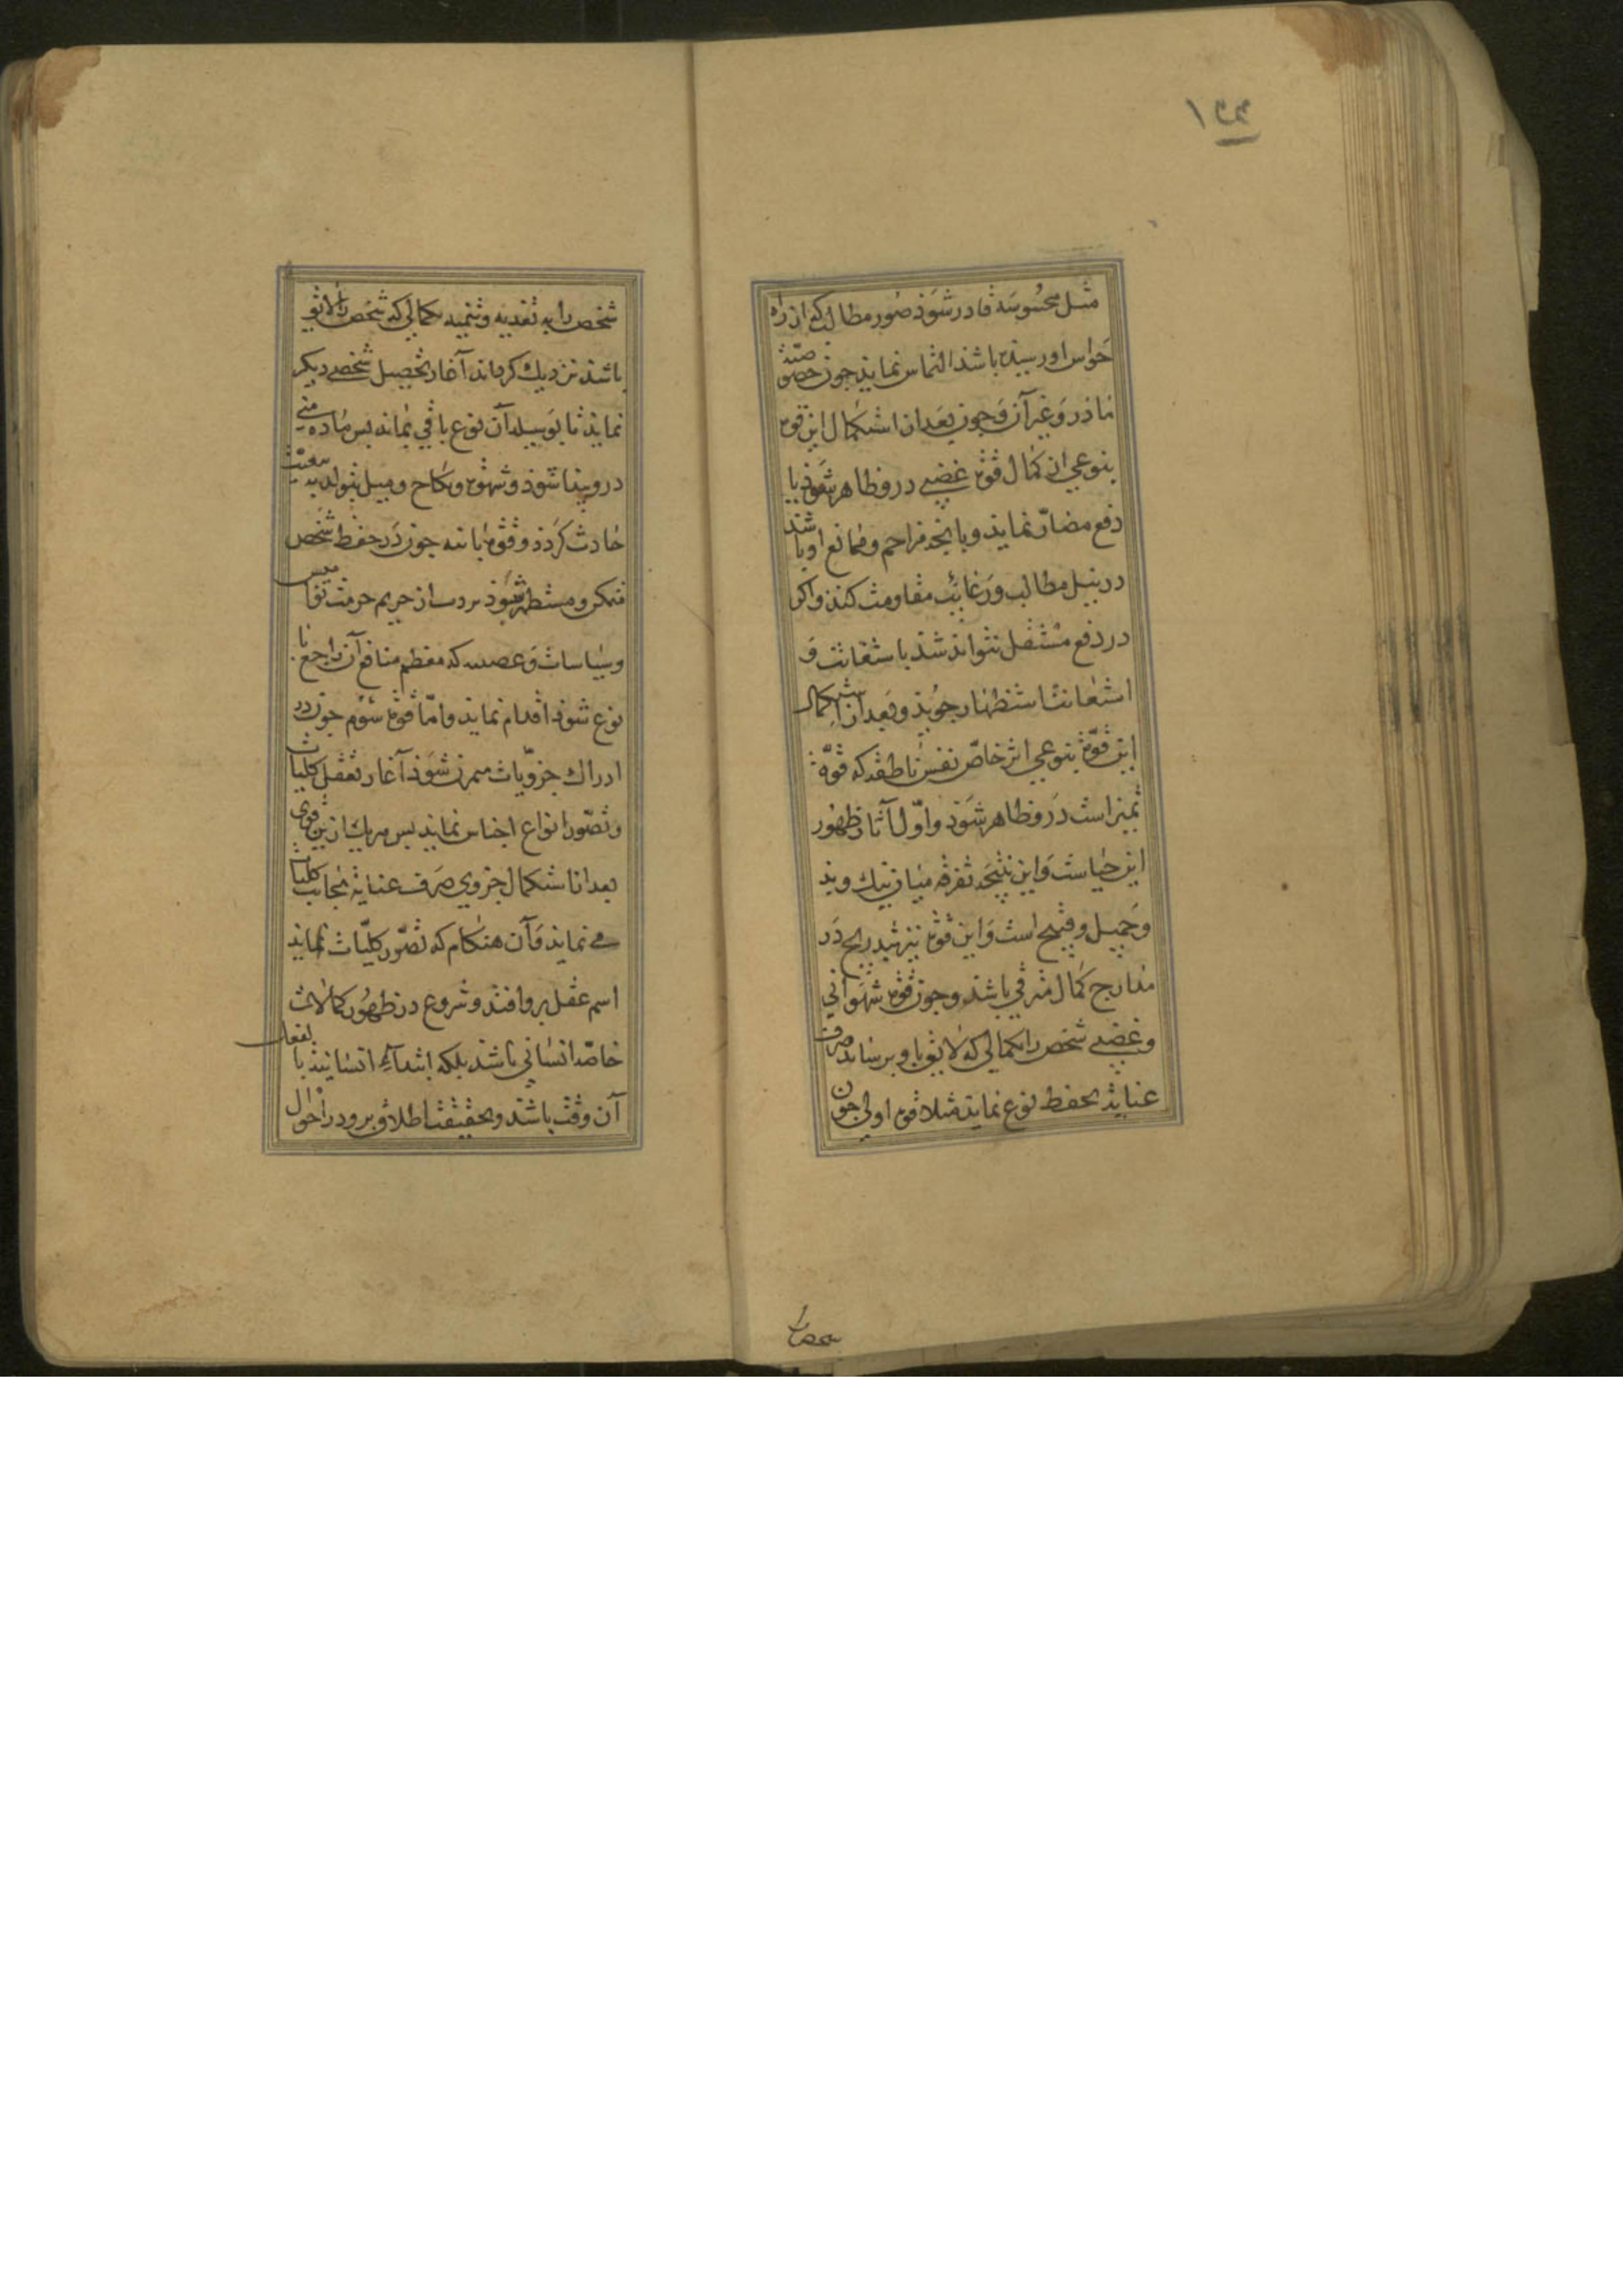 ۱۳۳
مثل محسوسه قادر شوذ صور مطالب که از راه
حواس اورسیده باشذ التماس نمایذ جون خصوصیّة
ماذر و غیر آن و جون بعد از استکمال این قوة
بنوعی از کمال قوة غضبی درو ظاهر شوذ با
دفع مضارّ نمایذ و بانجه مزاحم و ممانع او باشذ
در نیل مطالب و رغائب مقاومت کنذ و اکر
در دفع مستقل نتوانذ شذ باستغاثت و
استعانت استظهار جویذ و بعد از استکمال
این قوّة بنوعی اثر خاصّ نفس ناطقه که قوّة
تمیز است درو ظاهر شوذ و اوّل آثار ظهور
این حیاست و این نتیجه تفرقه میان نیک و بذ
و جمیل و قبیح است و این قوة نیز بتدریج در
مدارج کمال مترقی باشذ و جون قوة شهوانی
و غضبی شخص را بکمالی که لایق باو برسانذ صرف
عنایة بحفظ نوع نمایذ مثلا قوة اولی جون
شخص را به تغدیه و تنمیه بکمالی که شخص را لایق
باشذ نزدیک کرداند آغاز تحصیل شخصی دیکر
نمایذ تا بوسیله آن نوع باقی بماند بس مادّه منی
درو بیدا شوذ و شهوة و نکاح و میل بتولید
حادث کردذ و قوة ثانیه جون در حفظ شخص
متمکن و مستظهر شوذ از حریم حرمت
و سیاسات و که معظم منافع آن راجع با
نوع شوذ اقدام نماید و امّا قوة سوّم جون در
ادراک جزویات متمرن شوذ آغاز تعقل کلیات
و تصوّر انواع اجناس نماید بس هر یک ازین قوی
بعد از استکمال جزوی صرف عنایة بجانب کلیات
می نماید و آن هنکام که تصوّر کلیّات نماید
اسم عقل برو افتد و شروع در ظهور کمالات
خاصّه انسانی باشذ بلکه ابتداءِ انسانیت بالفعل
آن وقت باشذ و بحقیقت اطلاق برو در احوال